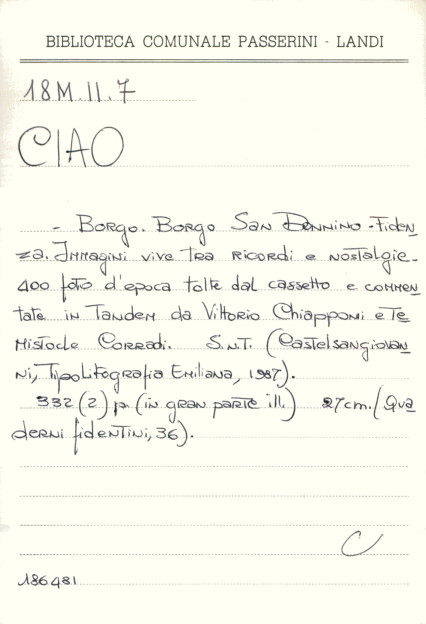 BIBLIOTECA COMUNALE PASSERINI - LANDI
18M.II.7
CIAO
- Borgo. Borgo San Donnino - Fiden
za. Immagini vive tra ricordi e nostalgie.
400 foto d'epoca tolte dal cassetto e commen
tate in Tandem da Vittorio Chiapponi e Te
mistocle Corradi. S.n.t. (Castelsangiovan
ni, Tipolitografia Emiliana, 1987).
332 (2) p. (in gran parte ill.) 27 cm. (Qua
derni fidentini, 36).
C
186481